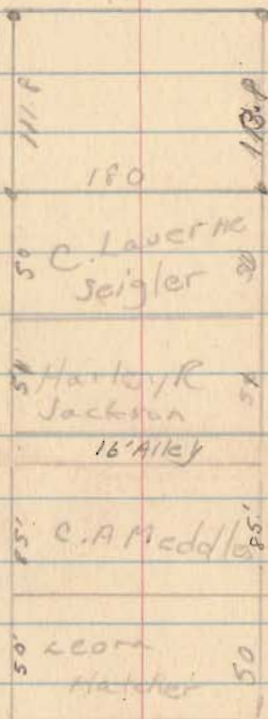 111.8 113.8
180
50 C. Laverne 50
Seigler
51 Harley R 51
Jackson
16' Alley
85' C. A Meddle 85'
50' Leon 50
Hatcher